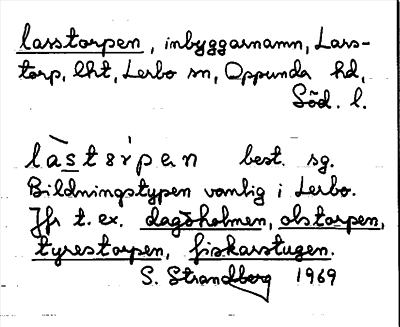 lasstorpen, inbyggarnamn, Lars-
torp, lht, Lerbo sn, Oppunda hd,
Söd. l.
làstɤ́pen best. sg.
Bildningstypen vanlig i Lerbo.
Jfr t. ex. dagsholmen, olstorpen,
tyrestorpen, fiskarstugen.
S. Strandberg 1969